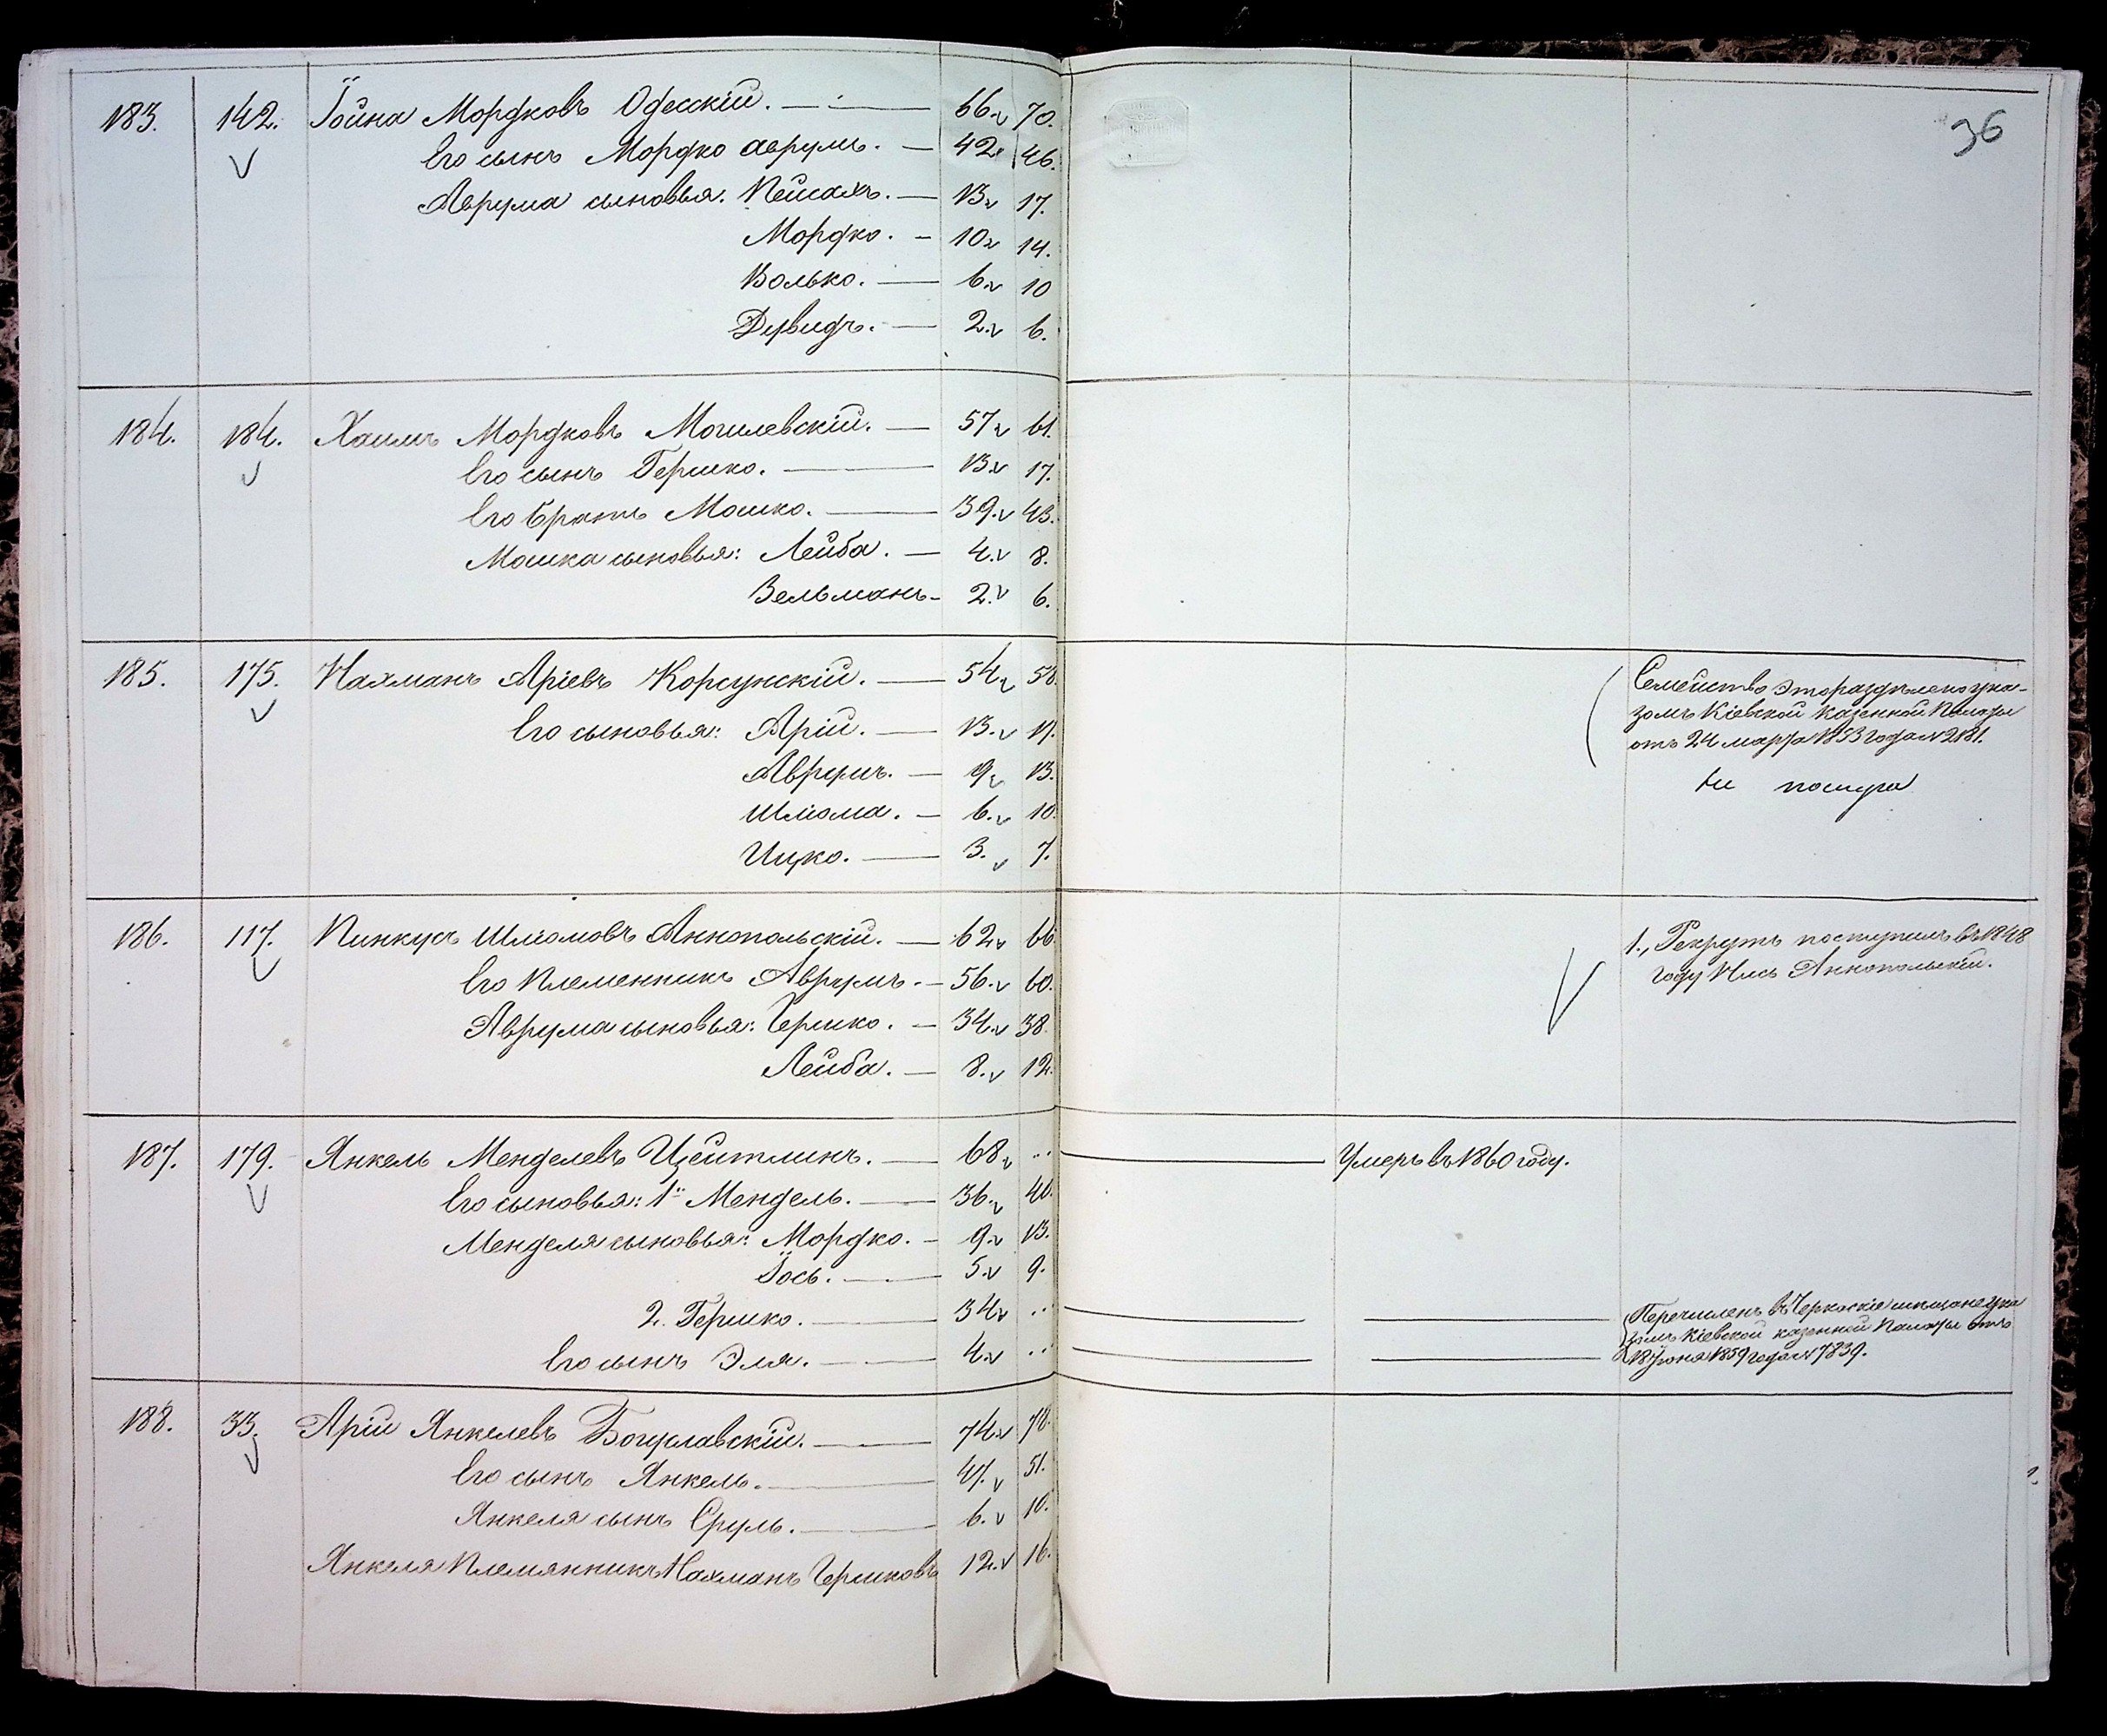 36
183. 142. Іойна Мордковъ Одесскій. — 66. 70.
Его сынъ Мордко Аврумъ. — 42. 46.
Аврума сыновья: Пейсахъ. — 13. 17.
Мордко. — 10. 14.
Волько. — 6. 10
Дувидъ. — 2. 6.
184. 184. Хаимъ Мордковъ Могилевскій. — 57. 61.
Его сынъ Гершко. — 13. 17.
Его братъ Мошко. — 39. 43.
Мошка сыновья: Лейба. — 4. 8.
Зельманъ — 2. 6.
185. 175. Нахманъ Аріевъ Корсунскій. — 54. 58.
Его сыновья: Арій. — 13. 17.
Аврумъ. — 9. 13.
Шліома. — 6. 10.
Ицко. — 3. 7.
Семейство это раздѣлено ука-
зомъ Кіевской казенной Палаты
отъ 24 марта 1853 года №2181.
186. 117. Пинкусъ Шліомовъ Аннопольскій. — 62. 66.
Его Племенникъ Аврумъ. — 56. 60.
Аврума сыновья: Гершко. — 34. 38.
Лейба. — 8. 12.
1., Рекрутъ поступилъ въ 1848
году Аннопольскій.
187. 179. Янкель Менделевъ Цейтлинъ. — 68. .. — Умеръ въ 1860 году.
Его сыновья: 1й Мендель. — 36. 40.
Менделя сыновья: Мордко. — 9. 13.
Іось. — 5. 9.
2. Гершко. — 34. ..
Его сынъ Эля. — 4. ..
Перечисленъ въ Черкаскіе мѣщане ука
зомъ Кіевской казенной Палаты отъ
18 Іюня 1859 года №7839.
188. 33. Арій Янкелевъ Богуславскій. — 74. 78.
Его сынъ Янкель. — 47. 51.
Янкеля сынъ Сруль. — 6. 10.
Янкеля Племянникъ Нахманъ Гершковъ 12. 16.